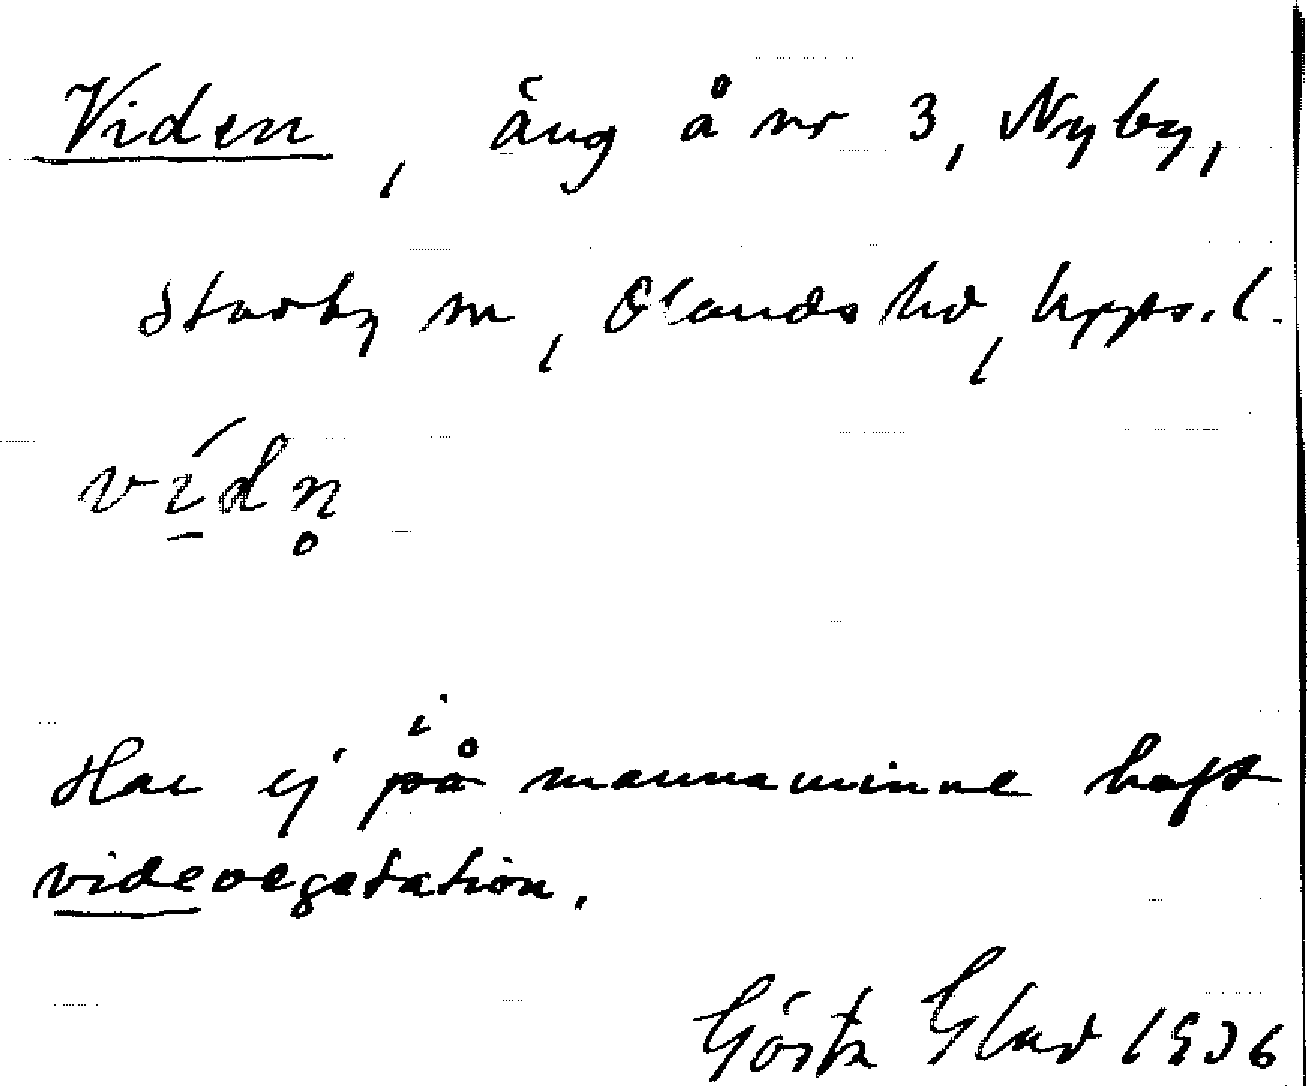 Viden, äng å nr 3, Nyby,
Starby m, Olands hd, Upps. l.
vídn̥
i
Har ej på mannaminne haft
videvegetation.
Gösta Glad 1936